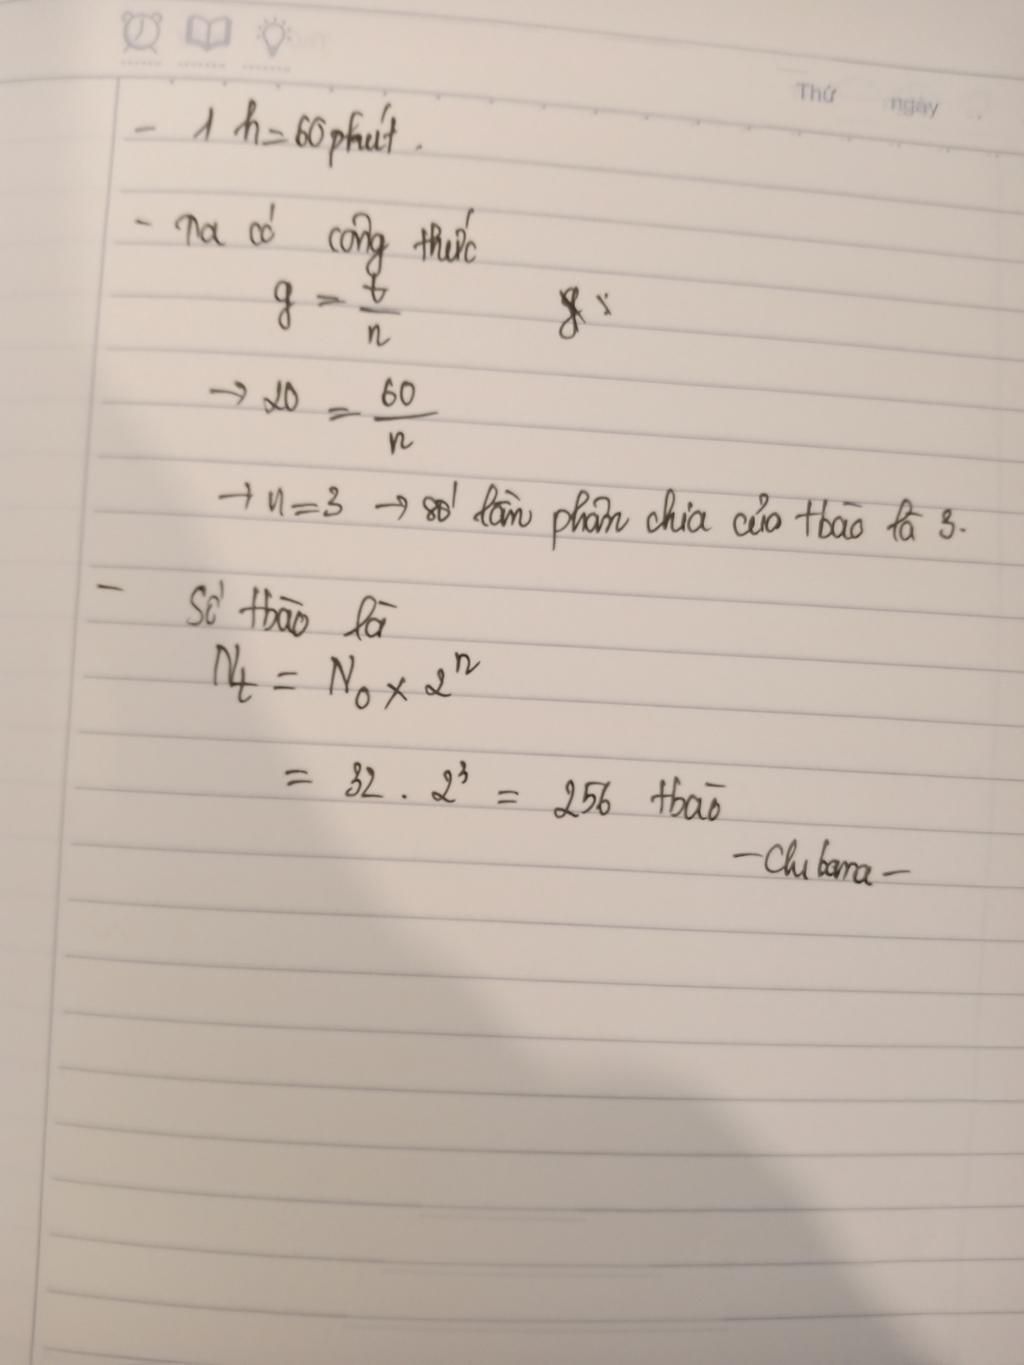 Thứ ngày
- 1 h = 60 phút.
- Ta có công thức
g = t/n
→ 20 = 60/n
→ n = 3 → số lần phân chia của tbào là 3.
- Số tbào là
Nt = N0 × 2^n
= 32 . 2^3 = 256 tbào